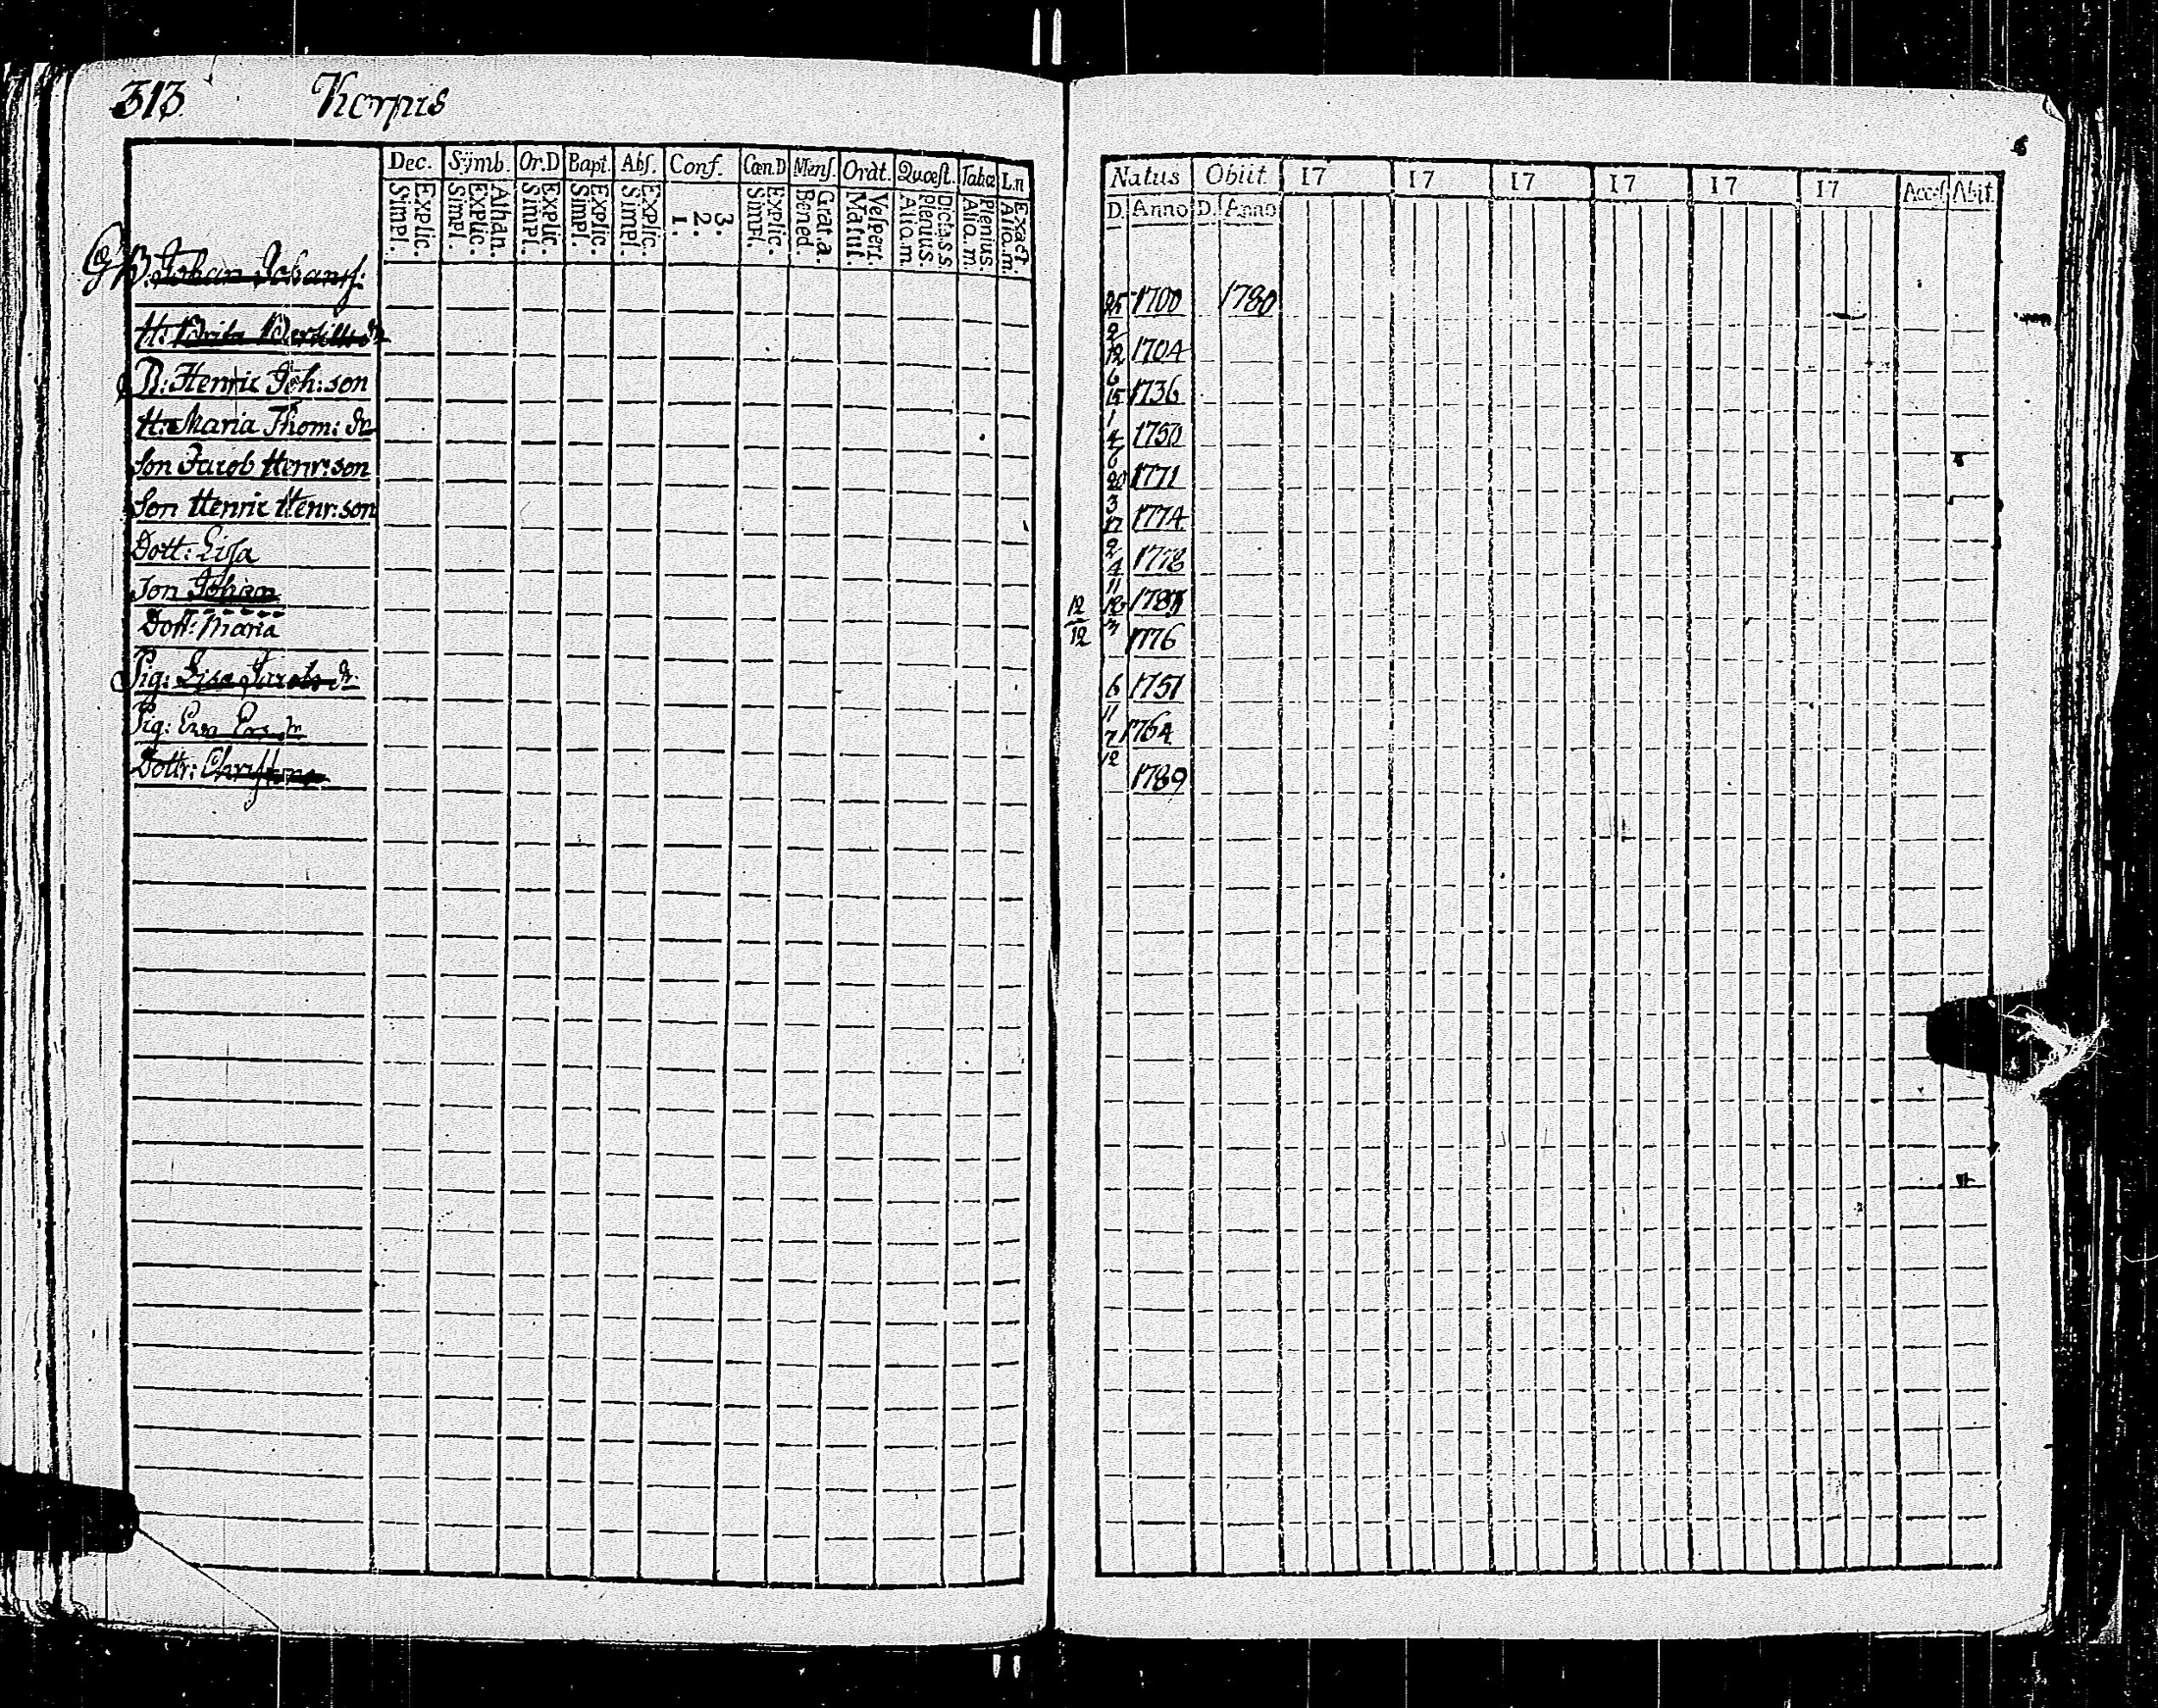 313 Korpis
Dec. Sÿmb. Or.D Bapt. Abſ. Conf. Cœn.D Menſ. Orat. Quœſt. Tabœ L.n
Simpl. Explic. Simpl. Explic. Athan. Simpl. Explic. Simpl. Explic. Simpl. Explic. 1. 2. 3. Simpl. Explic. Bened. Grat.a. Matut. Veſpert. Aliq.m. plenius. Dict.a.s.s. Aliq.m Plenius. Aliq.m. Exact.
B: Johan Johansſ:
H: Brita Bertills dr
B: Henric Joh:son
H: Maria Thom: dr
Son Jacob Henr:son
Son Henric Henr:son
Dott: Lisa
Son Johan
Dott: Maria
Pig: Lisa Jacobs dr.
Pig: Eva Er dr
Dottr: Christina
Natus Obiit 17 17 17 17 17 17 Acceſ Abit.
D. Anno D. Anno
25/2 1700 1780
12/6 1704
15/1 1736
4 1750
20/3 1771
17/2 1774
4/11 1778
178
12/12 1776
6/11 1751
7/12 1764
1789